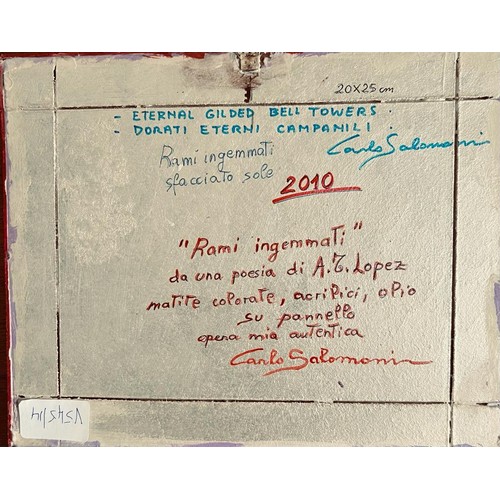 20x25 cm
- ETERNAL GILDED BELL TOWERS
- DORATI ETERNI CAMPANILI
Carlo Salomoni
Rami ingemmati
sfacciato sole
2010
"Rami ingemmati"
da una poesia di A.T. Lopez
matite colorate, acrilici, olio
su pannello
opera mia autentica
Carlo Salomoni
V545/14